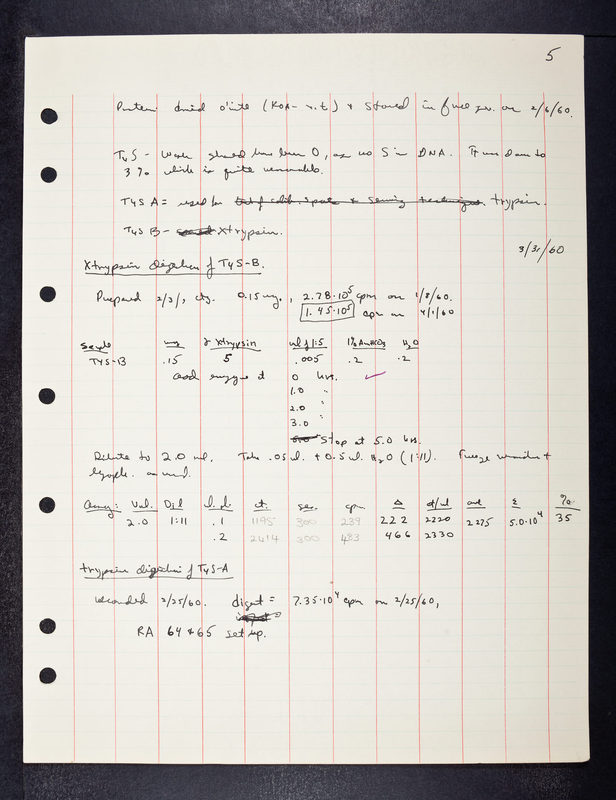 5
Protein dried o'nite (KOH - r.t.) & stored in on 2/6/60.
T4S - Work should have been O, as no S in DNA. It was down to
3% which is quite reasonable.
T4S A = used for trypsin.
T4S B - Xtrypsin.
3/31/60
Xtrypsin digestion of T4S-B.
Prepared 2/3/, ctg. 0.15 mg., 2.78·10⁵ cpm on 1/8/60.
1.45·10⁵ cpm on 4/1/60
Sample mg γ Xtrypsin ml of 1:5 1% Am HCO3 H2O
T4S-B .15 5 .005 .2 .2
add enzyme at 0 hrs. ✓
1.0 "
2.0 "
3.0 "
Stop at 5.0 hrs.
Dilute to 2.0 ml. Take .05 ml. + 0.5 ml. H2O (1:11). Freeze remainder +
lyoph. as usual.
Assay: Vol. Dil ct. sec. cpm Δ ct/ml ave Σ %
2.0 1:11 .1 1195 300 239 222 2220 2275 5.0·10⁴ 35
.2 2414 300 483 466 2330
trypsin digestion of T4S-A
recorded 2/25/60. digest = 7.35·10⁴ cpm on 2/25/60,
RA 64 & 65 set up.